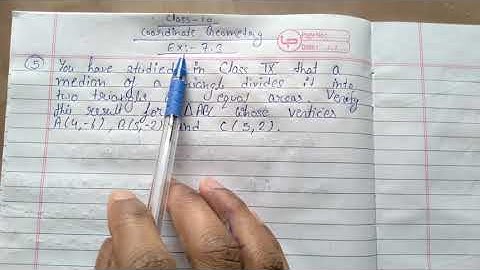 Class-10
Coordinate Geometry
Ex:- 7.3
(5) You have studied in Class IX that a
median of a divides it into
two triangle equal areas. Verify
this result for △ABC whose vertices
A(4,-6), B(3,-2) and C(5,2).